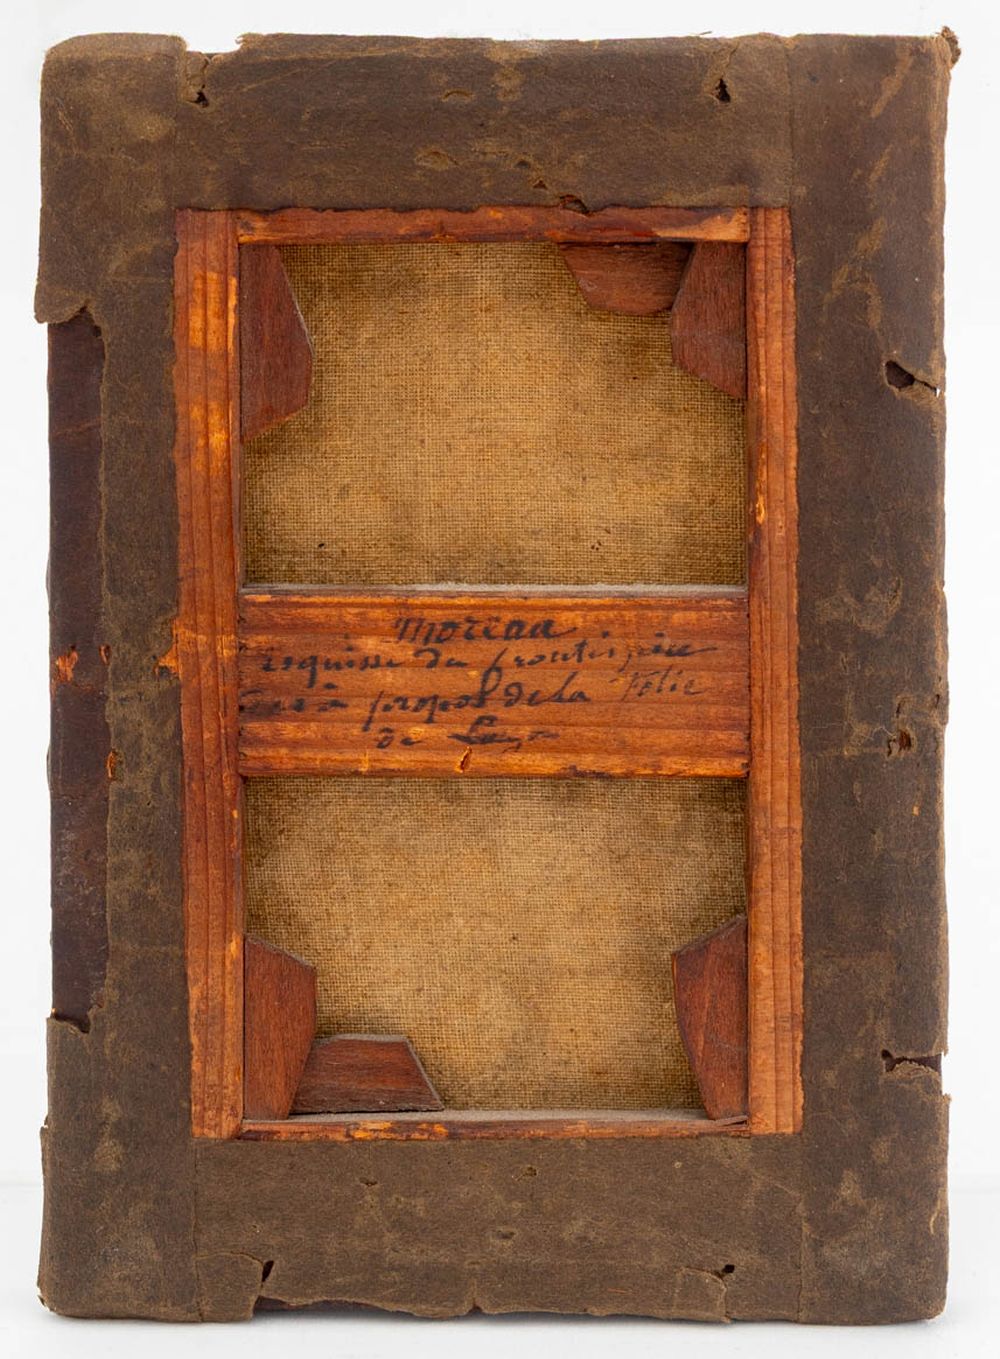 Moreau
Esquisse du frontispice
propos de la Folie
de